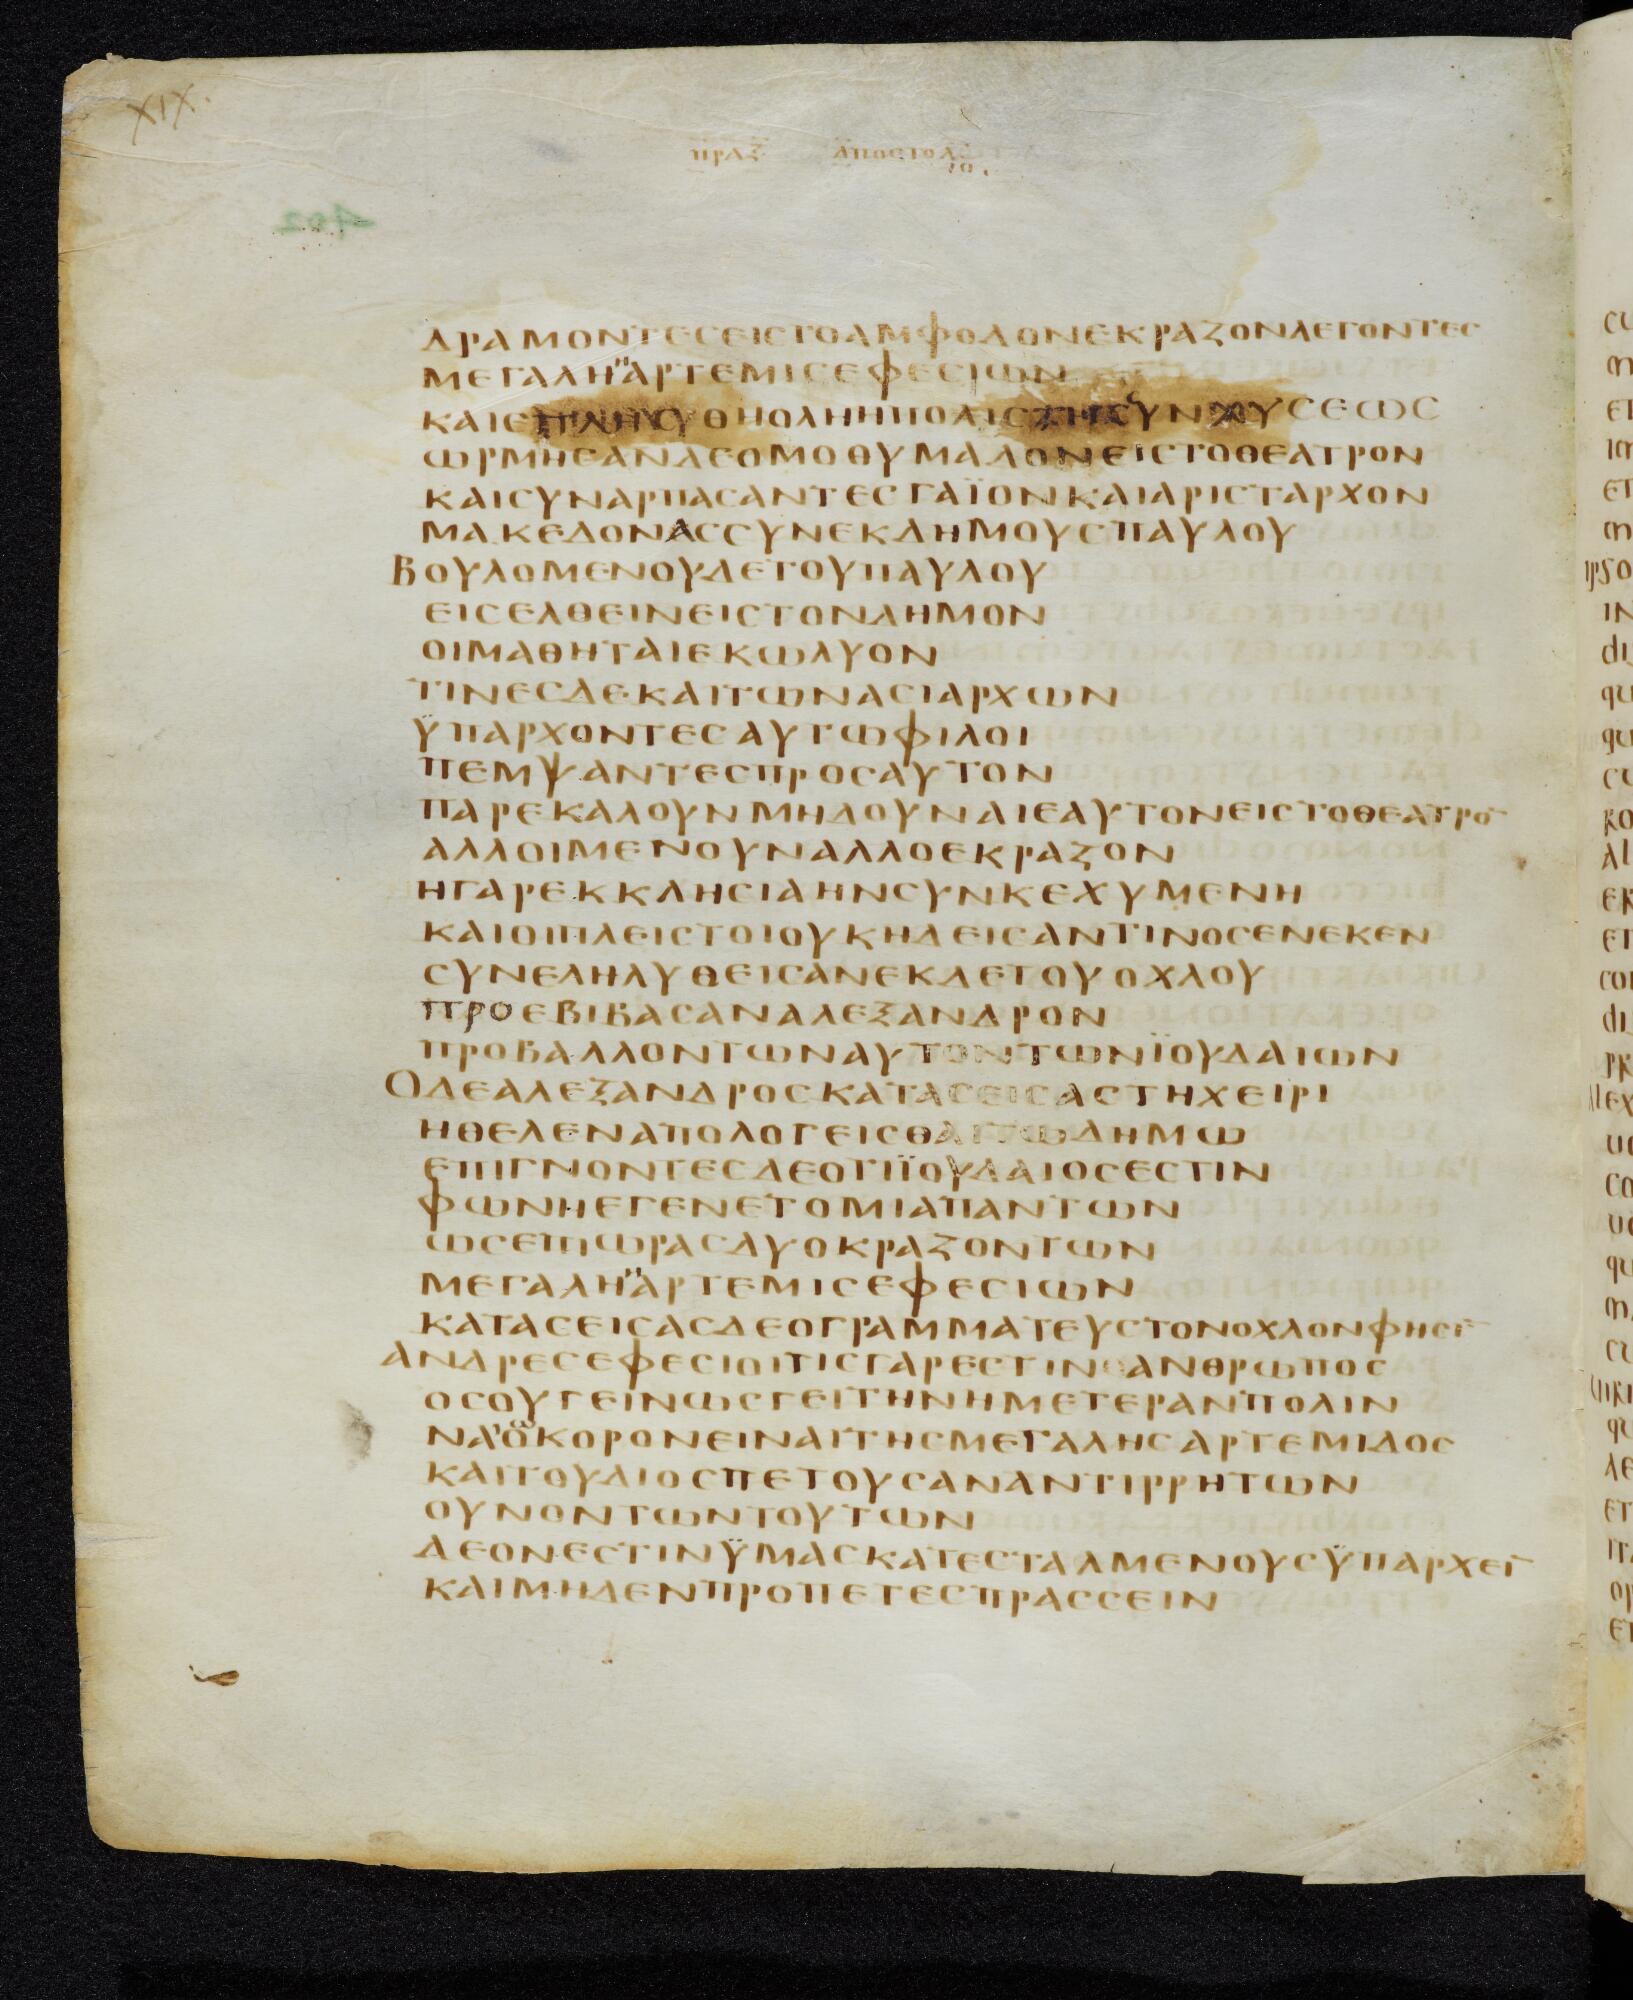 XIX.
ΠΡΑΞ ΑΠΟΣΤΟΛ
ΔΡΑΜΟΝΤΕϹΕΙϹΤΟΑΜΦΟΔΟΝΕΚΡΑΖΟΝΛΕΓΟΝΤΕϹ
ΜΕΓΑΛΗΗΑΡΤΕΜΙϹΕΦΕϹΙΩΝ
ΚΑΙΕΠΛΗϹΘΗΟΛΗΗΠΟΛΙϹΤΗϹϹΥΝΧΥϹΕΩϹ
ΩΡΜΗϹΑΝΔΕΟΜΟΘΥΜΑΔΟΝΕΙϹΤΟΘΕΑΤΡΟΝ
ΚΑΙϹΥΝΑΡΠΑϹΑΝΤΕϹΓΑΪΟΝΚΑΙΑΡΙϹΤΑΡΧΟΝ
ΜΑΚΕΔΟΝΑϹϹΥΝΕΚΔΗΜΟΥϹΠΑΥΛΟΥ
ΒΟΥΛΟΜΕΝΟΥΔΕΤΟΥΠΑΥΛΟΥ
ΕΙϹΕΛΘΕΙΝΕΙϹΤΟΝΔΗΜΟΝ
ΟΙΜΑΘΗΤΑΙΕΚΩΛΥΟΝ
ΤΙΝΕϹΔΕΚΑΙΤΩΝΑϹΙΑΡΧΩΝ
ΫΠΑΡΧΟΝΤΕϹΑΥΤΩΦΙΛΟΙ
ΠΕΜΨΑΝΤΕϹΠΡΟϹΑΥΤΟΝ
ΠΑΡΕΚΑΛΟΥΝΜΗΔΟΥΝΑΙΕΑΥΤΟΝΕΙϹΤΟΘΕΑΤΡΟ¯
ΑΛΛΟΙΜΕΝΟΥΝΑΛΛΟΕΚΡΑΖΟΝ
ΗΓΑΡΕΚΚΛΗϹΙΑΗΝϹΥΝΚΕΧΥΜΕΝΗ
ΚΑΙΟΙΠΛΕΙϹΤΟΙΟΥΚΗΔΕΙϹΑΝΤΙΝΟϹΕΝΕΚΕΝ
ϹΥΝΕΛΗΛΥΘΕΙϹΑΝΕΚΔΕΤΟΥΟΧΛΟΥ
ΠΡΟΕΒΙΒΑϹΑΝΑΛΕΞΑΝΔΡΟΝ
ΠΡΟΒΑΛΛΟΝΤΩΝΑΥΤΟΝΤΩΝΪΟΥΔΑΙΩΝ
ΟΔΕΑΛΕΞΑΝΔΡΟϹΚΑΤΑϹΕΙϹΑϹΤΗΧΕΙΡΙ
ΗΘΕΛΕΝΑΠΟΛΟΓΕΙϹΘΑΙΤΩΔΗΜΩ
ΕΠΙΓΝΟΝΤΕϹΔΕΟΤΙΪΟΥΔΑΙΟϹΕϹΤΙΝ
ΦΩΝΗΕΓΕΝΕΤΟΜΙΑΠΑΝΤΩΝ
ΩϹΕΠΙΩΡΑϹΔΥΟΚΡΑΖΟΝΤΩΝ
ΜΕΓΑΛΗΗΑΡΤΕΜΙϹΕΦΕϹΙΩΝ
ΚΑΤΑϹΕΙϹΑϹΔΕΟΓΡΑΜΜΑΤΕΥϹΤΟΝΟΧΛΟΝΦΗϹΙ¯
ΑΝΔΡΕϹΕΦΕϹΙΟΙΤΙϹΓΑΡΕϹΤΙΝΑΝΘΡΩΠΟϹ
ΟϹΟΥΓΕΙΝΩϹΓΕΙΤΗΝΗΜΕΤΕΡΑΝΠΟΛΙΝ
ΝΑΟΚΟΡΟΝΕΙΝΑΙΤΗϹΜΕΓΑΛΗϹΑΡΤΕΜΙΔΟϹ
ΚΑΙΤΟΥΔΙΟϹΠΕΤΟΥϹΑΝΑΝΤΙΡΡΗΤΩΝ
ΟΥΝΟΝΤΩΝΤΟΥΤΩΝ
ΔΕΟΝΕϹΤΙΝΫΜΑϹΚΑΤΕϹΤΑΛΜΕΝΟΥϹΫΠΑΡΧΕΙ¯
ΚΑΙΜΗΔΕΝΠΡΟΠΕΤΕϹΠΡΑϹϹΕΙΝ